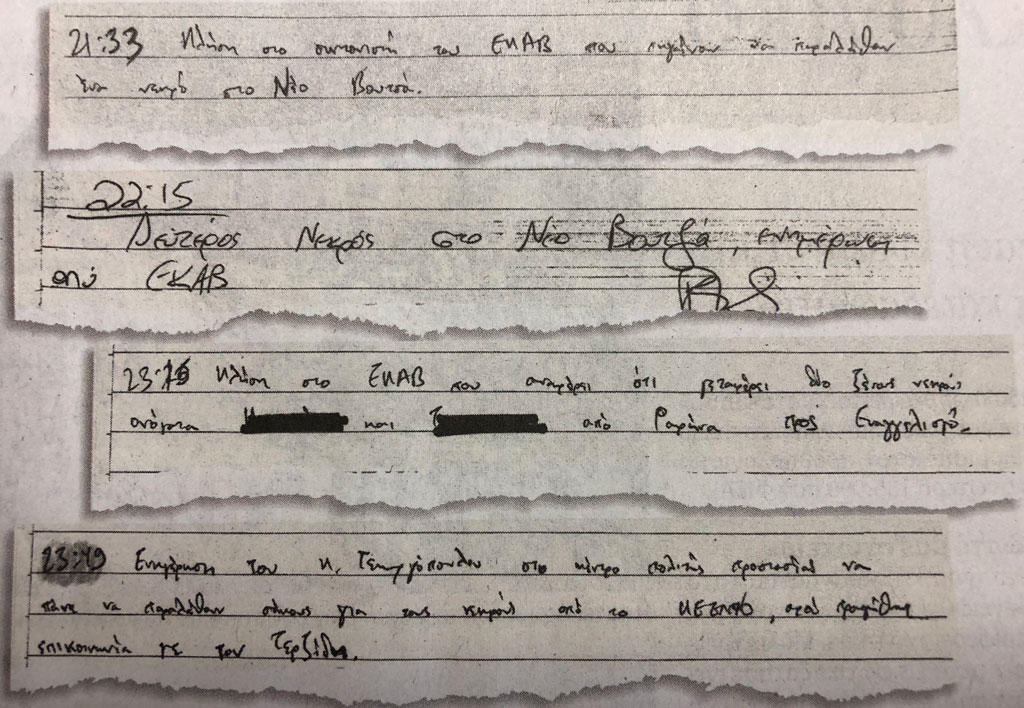 21:33 Κλήση στο συντονιστή του ΕΚΑΒ που πηγαίνουν να παραλάβουν
ένα νεκρό στο Νέο Βουτσά.
22:15
Δεύτερος Νεκρός στο Νέο Βουτζά, ενημέρωση
από ΕΚΑΒ
Κλήση στο ΕΚΑΒ που αναφέρει ότι μεταφέρει δύο ξένους νεκρούς
ονόματα και από Ραφήνα προς Ευαγγελισμό.
Ενημέρωση του κ. στο κέντρο πολιτικής προστασίας να
πάνε να παραλάβουν σάκους για τους νεκρούς από το
επικοινωνία με τον Τερζίδη.